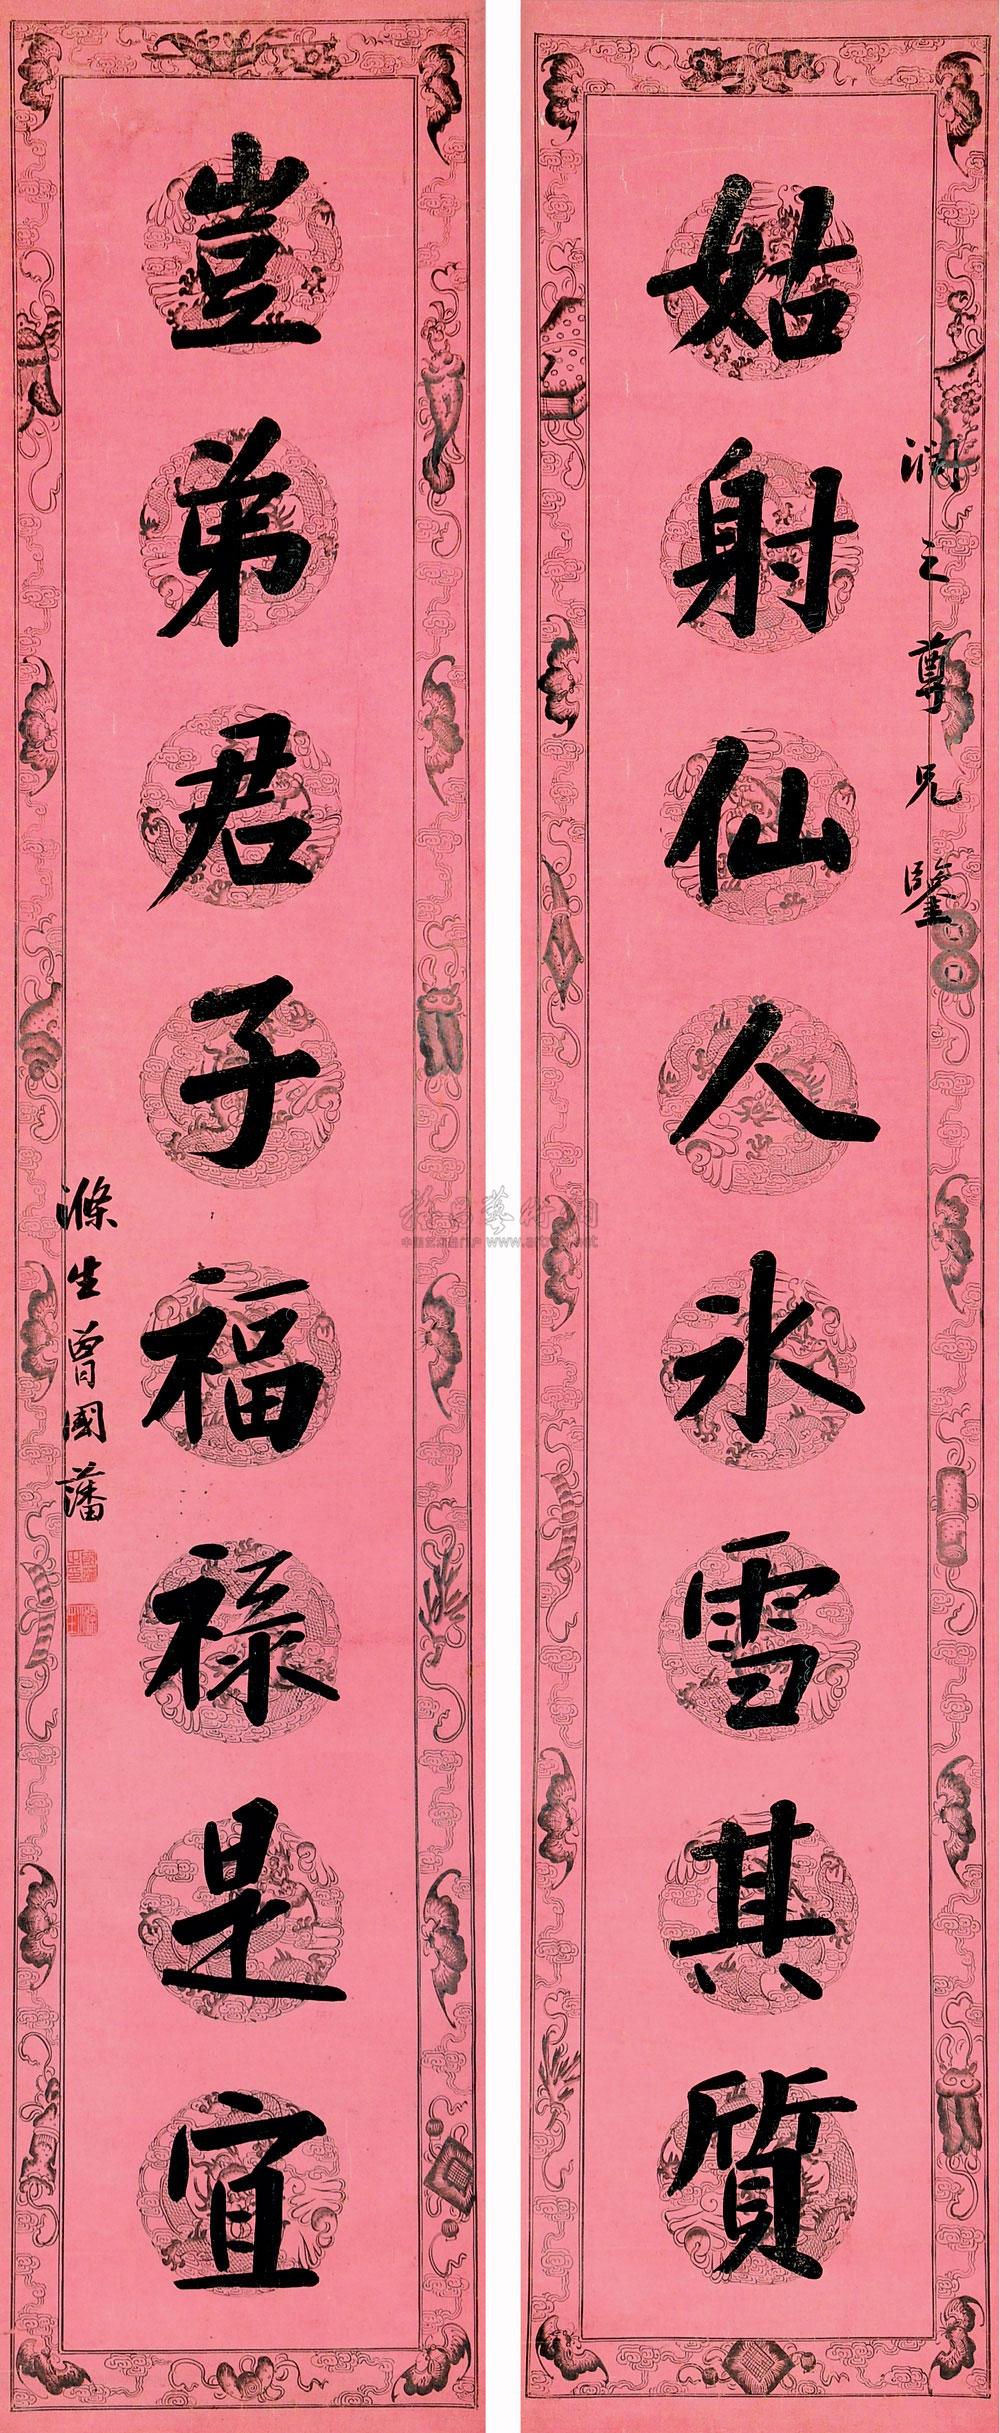 姑射仙人冰雪其質
潤之尊兄鑒
豈弟君子福祿是宜
滌生曾國藩
www.artxun.net